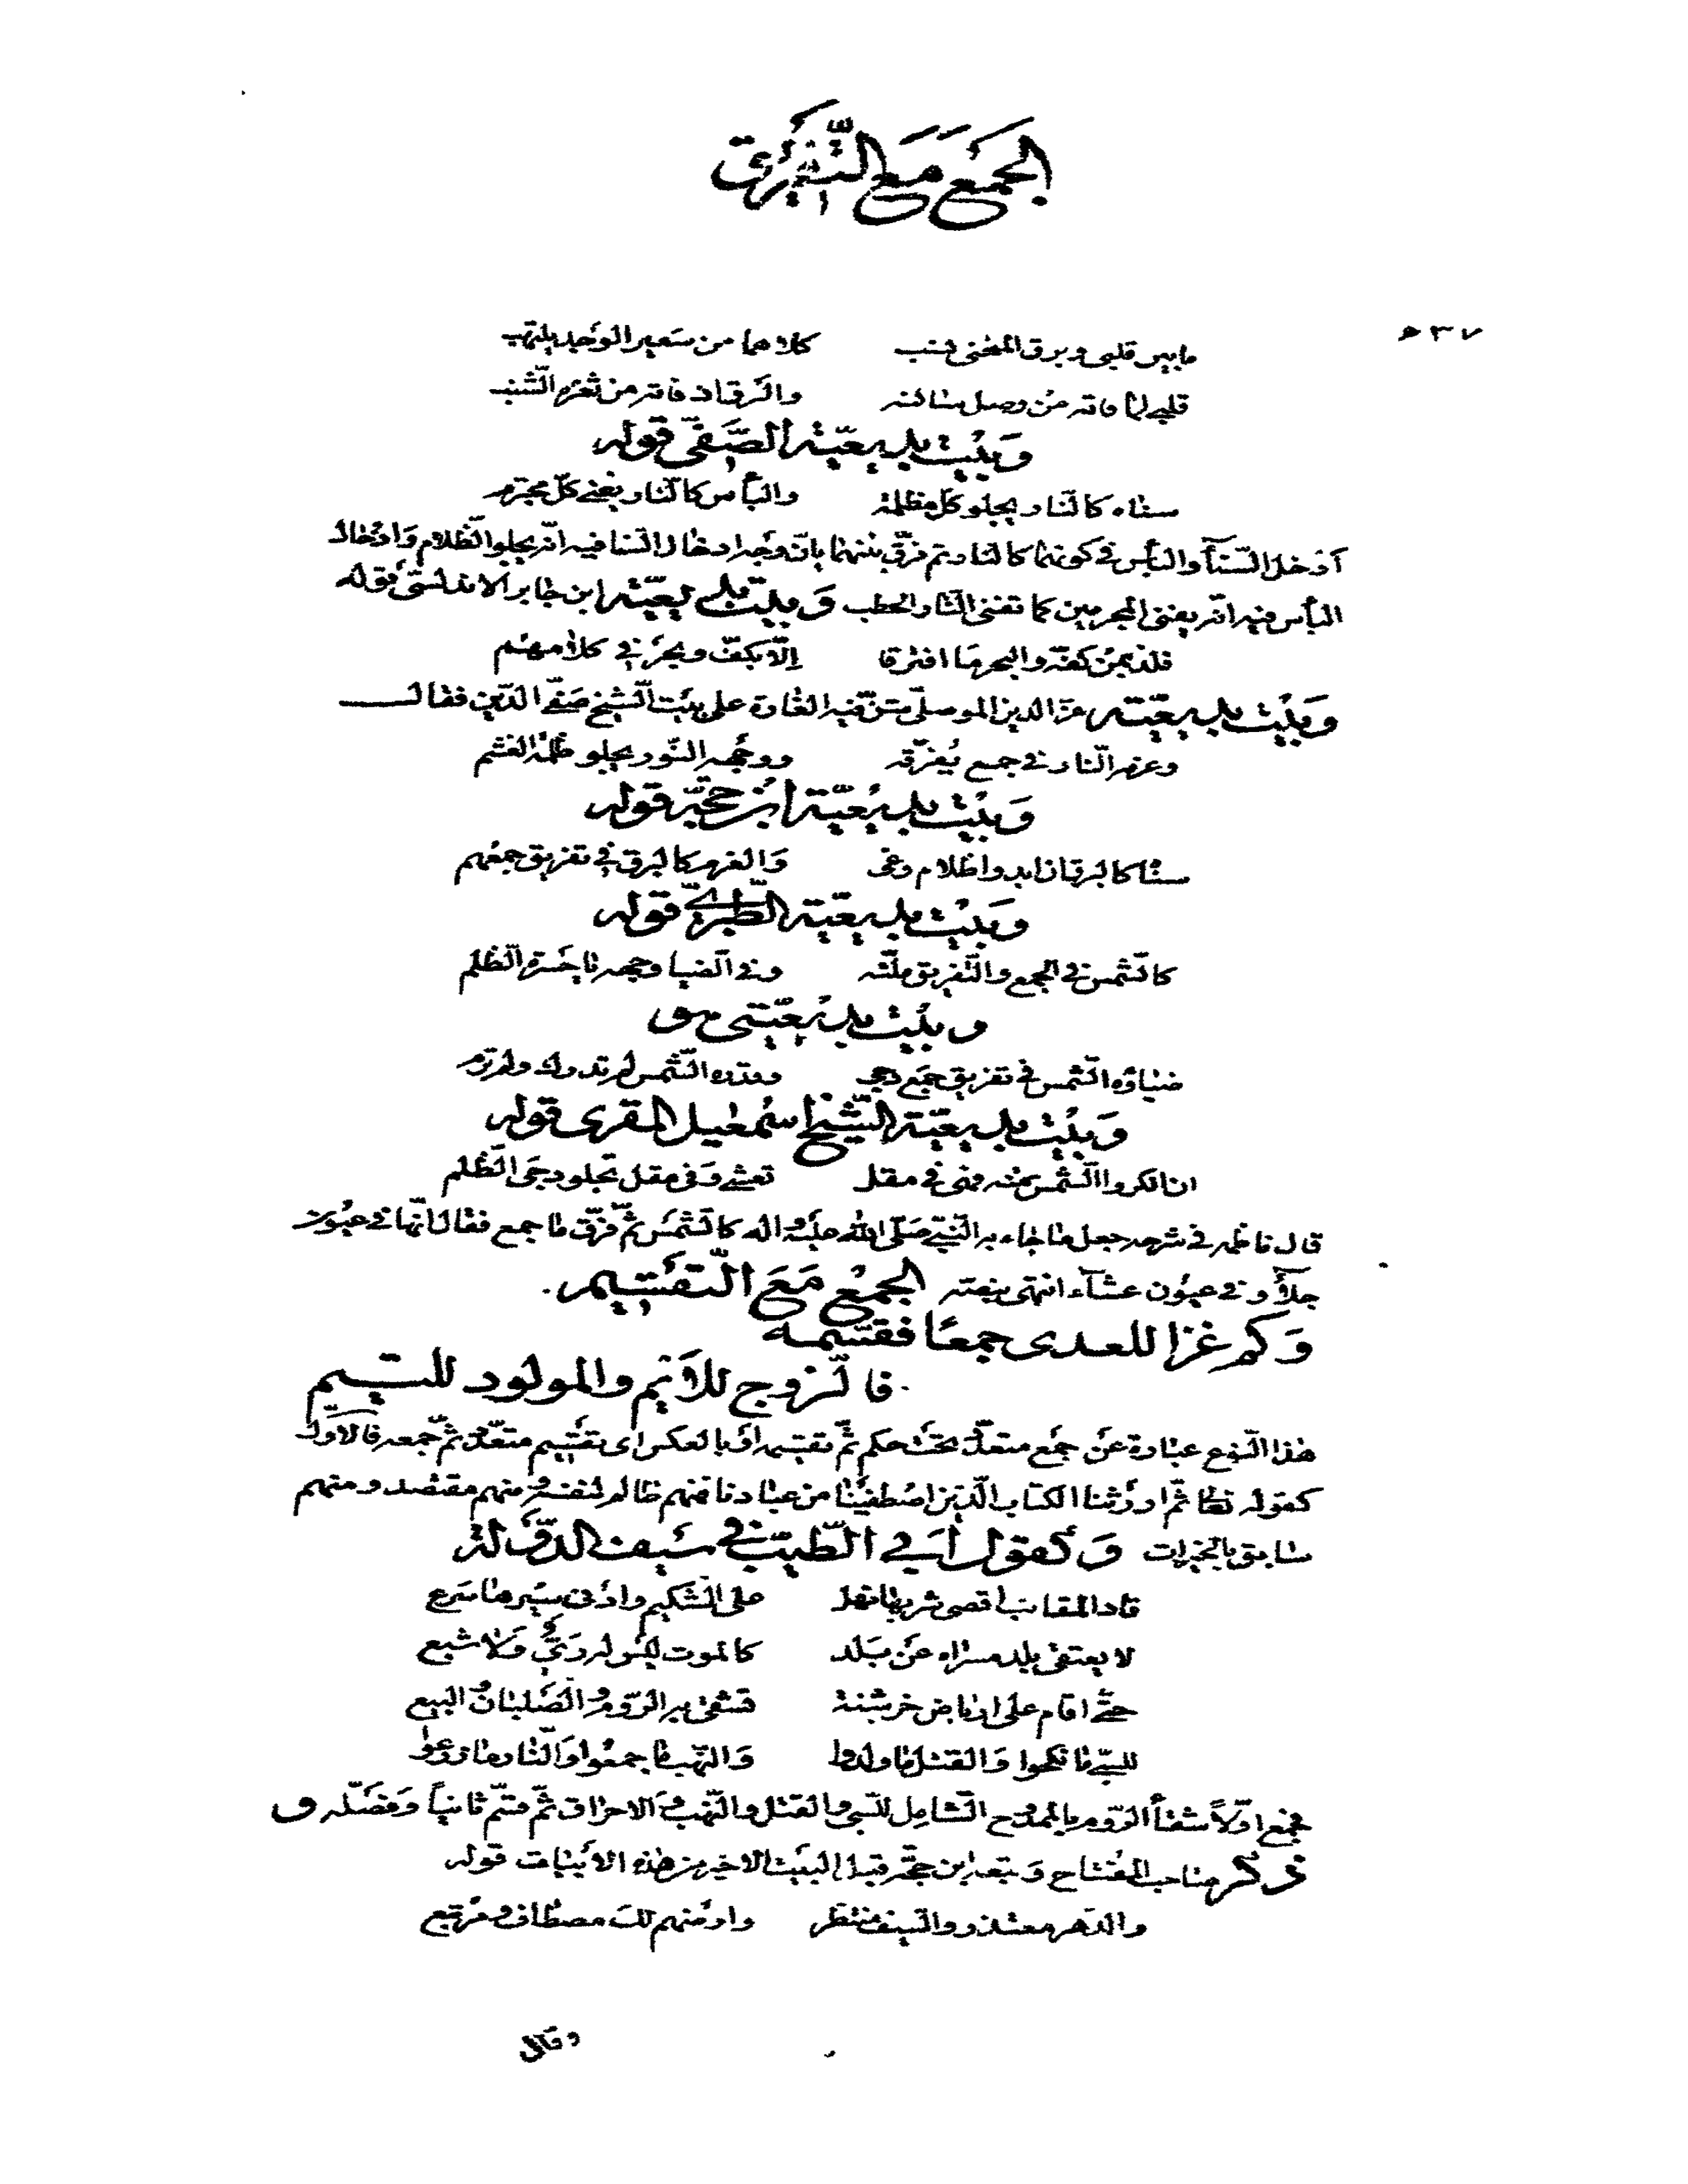 الجمع مع التفريق
٥٣٧
ما بين قلبي وبرق المنحنى نسب كلاهما من سعير الوجد يلتهب
قلبي لما فاته من وصل ساكنه والبرق اذ فاته من ثغره الشنب
وبيت بديعية الصفي قوله
سناه كالنار يجلو كل مظلمة والبأس كالنار يفني كل مجترم
أدخل السنآ والبأس في كونهما كالنار ثم فرق بينهما بان وجه ادخال السنا فيه انه يجلو الظلام وادخال
البأس فيه انه يفنى المجرمين كما تفنى النار الحطب وبيت بديعية ابن جابر الاندلسي قوله
فلذ بمن كفه والبحر ما افترقا إلا بكف وبحر في كلامهم
وبيت بديعية عز الدين الموصلي شن فيه الغارة على بيت الشيخ صفي الدين فقال
وعزمه النار في جمع يفرقه ووجهه النور يجلو ظلمة الغشم
وبيت بديعية ابن حجة قوله
سناه كالبرق ان ابدوا ظلام وغى والعزم كالبرق في تفريق جمعهم
وبيت بديعية الطبري قوله
كالشمس في الجمع والتفريق ملته وفي الضيا وجهه ناخسة الظلم
وبيت بديعيتي هو
ضياؤه الشمس في تفريق جمع دجى وقدره الشمس لم تدرك ولم ترم
وبيت بديعية الشيخ اسمعيل المقري قوله
ان انكروا الشمس منه فهي في مقل تعشي وفي مقل تجلو دجى الظلم
قال ناظمه في شرحه جعل ما جاء به النبي صلى الله عليه واله كالشمس ثم فرق ما جمع فقال انها في عيون
جلآ وفي عيون عشآء انتهى بنصه الجمع مع التقسيم
وكم غزا للعدى جمعا فقسمه
فالزوج للأيم والمولود لليتم
هذا النوع عبارة عن جمع متعدد تحت حكم ثم تقسيمه او بالعكس اى تقسيم متعدد ثم جمعه فالاول
كقوله تعالى ثم اورثنا الكتاب الذين اصطفينا من عبادنا فمنهم ظالم لنفسه ومنهم مقتصد ومنهم
سابق بالخيرات وكقول أبي الطيب في سيف الدولة
قاد المقانب اقصى شربها نهل على الشكيم وادنى سيرها سرع
لا يعتقي بلد مسراه عن بلد كالموت ليس له ري ولا شبع
حتى اقام على ارباض خرشنة تشقى به الروم والصلبان والبيع
للسبي ما نكحوا والقتل ما ولدوا والنهب ما جمعوا والنار ما زرعوا
فجمع اولا شقاء الروم بالممدوح الشامل للسبي والقتل والنهب والاحراق ثم قسم ثانيا وفصله و
ذكر صاحب المفتاح وتبعه ابن حجة قبل البيت الاخير من هذه الأبيات قوله
والدهر معتذر والسيف منتظر وارضهم لك مصطاف ومرتبع
وقال